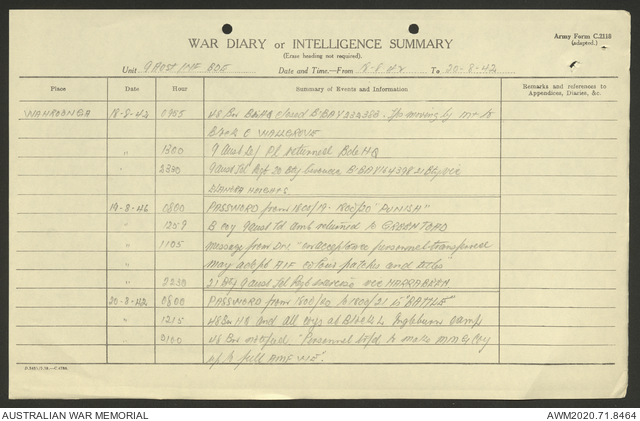 Army Form C.2118
(adapted.)
WAR DIARY or INTELLIGENCE SUMMARY
(Erase heading not required).
Unit 9 AUST INF BDE Date and Time.—From 18-8-42 To 20-8-42
Place Date Hour Summary of Events and Information Remarks and references to Appendices, Diaries, &c.
WAHROONGA 18-8-42 0955 closed moving by
WALLGROVE
" 1300 9 Aust Pl returned Bde HQ
" 2330 9 Aust Fd Regt 20 Bty
HEIGHTS
19-8-42 0800 PASSWORD from 1800/19 - 1800/20 "PUNISH"
" B coy 9 Aust Fd Amb returned to GREEN ROAD
" 1105 message from Div "on acceptance personnel transferred
may adopt AIF colour patches and titles"
" 2230 21 Bty 9 Aust Fd Regt exercise
20-8-42 0800 PASSWORD from 1800/20 to 1800/21 is "BATTLE"
" 1215 HQ and all coys at Block L Ingleburn Camp
" 2100 notified "Personnel to make MMG Coy
up to full AMF WE".
AUSTRALIAN WAR MEMORIAL
AWM2020.71.8464